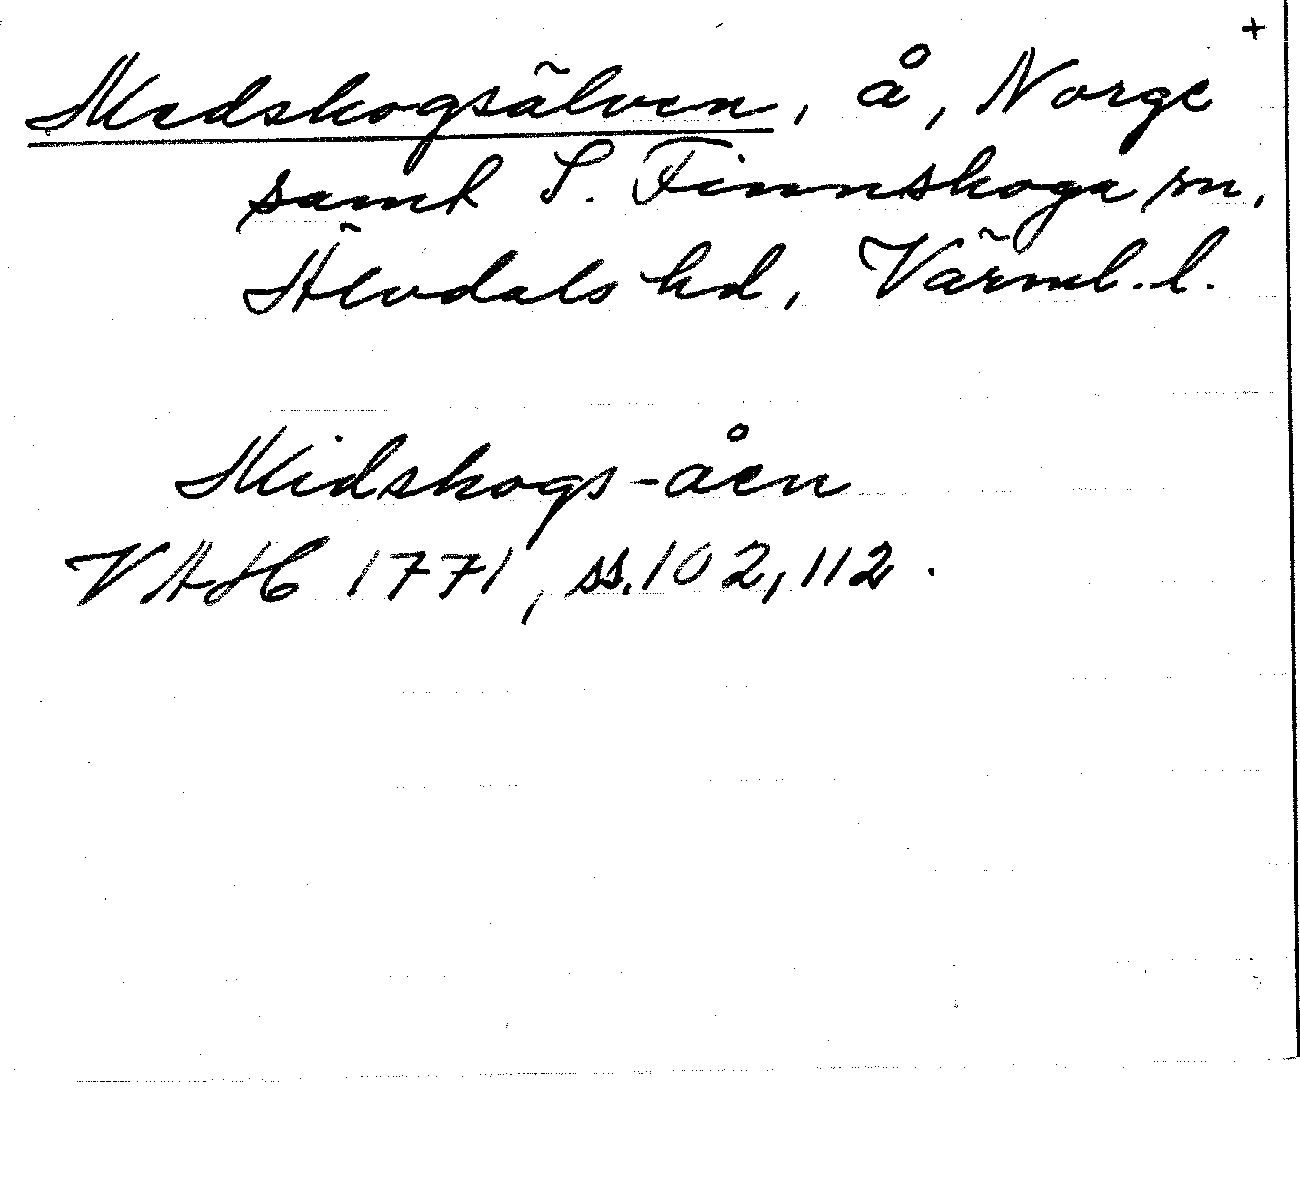 +
Medskogsälven, å, Norge
samt S. Finnskoga sn,
Älvdals hd, Värml. l.
Midskogs-åen
VAH 1771, ss. 102, 112.